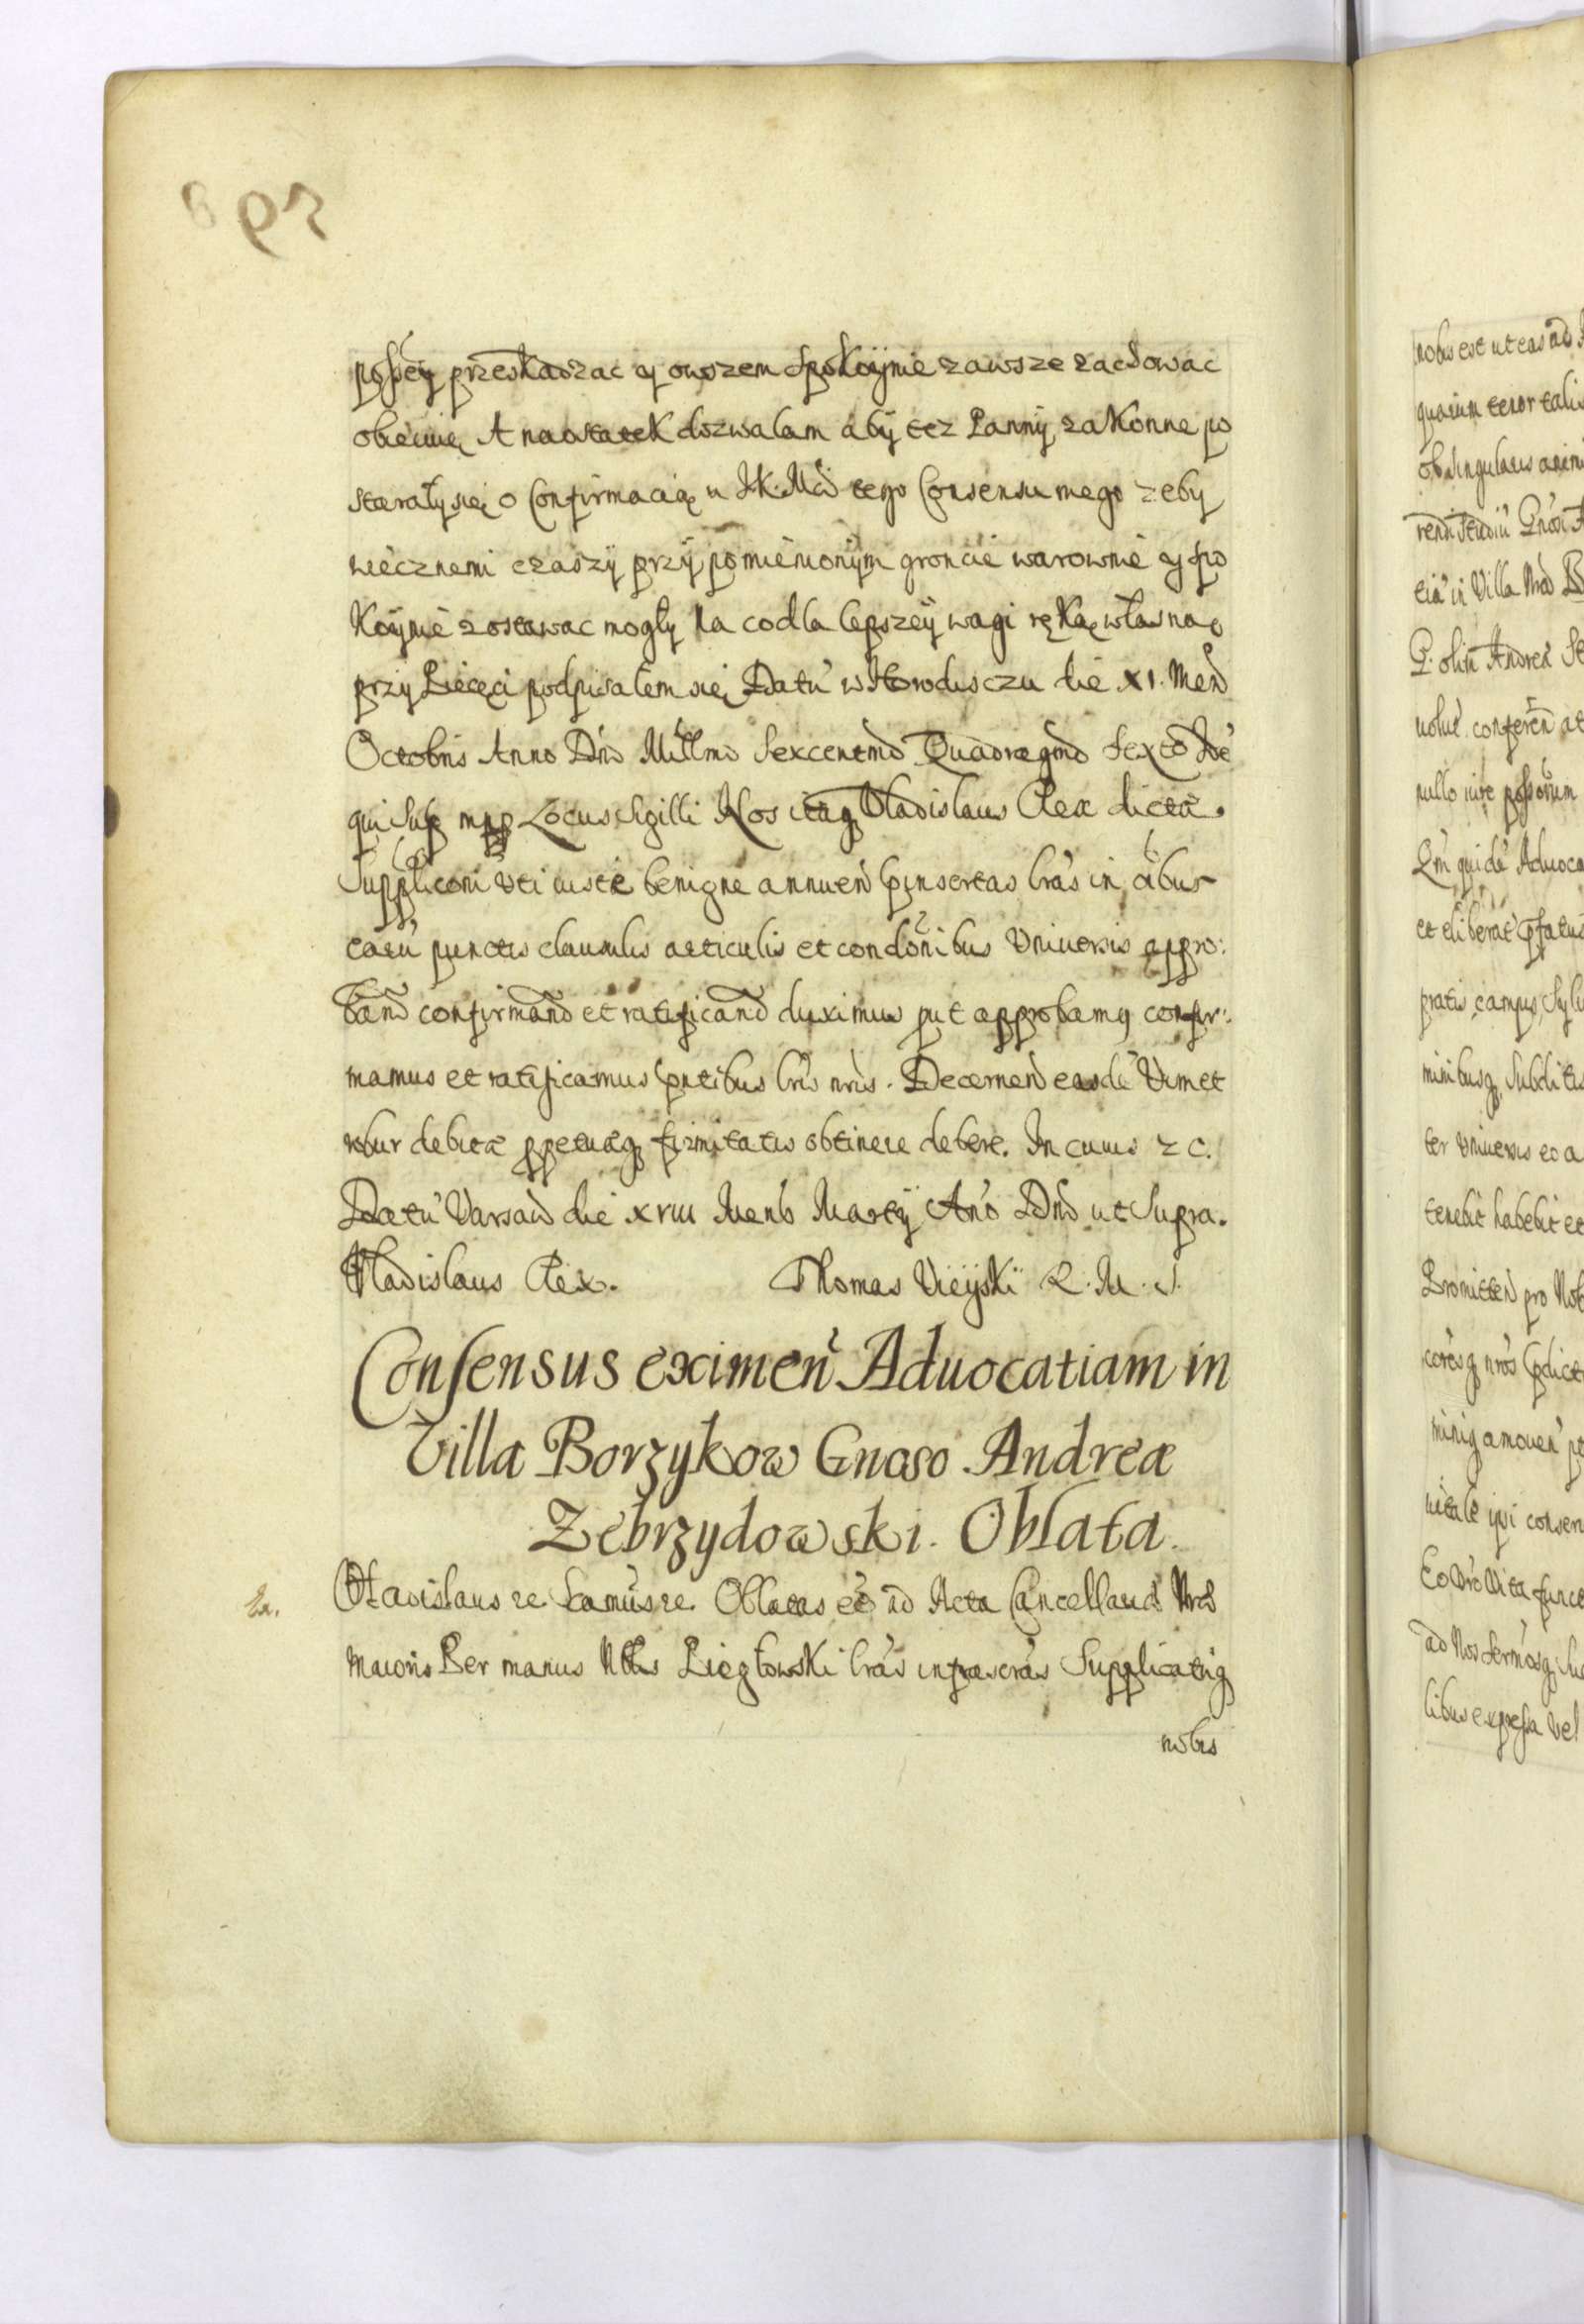 possey przeskadzac ÿ owszem spokoÿnie zawsze zachowac
obiecuię A naostatek dozwalam abÿ tez Pannÿ zakonne po
starałÿ się o Confirmacią u J.K.Mci tego Consensu mego zeby
wiecznemi czaszÿ przÿ pomienionÿm groncie warownie ÿ spo
koÿnie zostawac mogłÿ Na co dla lepszeÿ wagi ręką własną
przy Pieczęci podpisałem się Datū w Horodisczu die XI. Mens
Octobris Anno Dni Millmo Sexcentmo Quadragmo Sexto Ide
qui Sup mpp Locus Sigilli Nos itaq Vladislaus Rex dictæ.
Suppliconi Vti iustæ benigne annuen pinsertas lras in oibus
earū punctis clausulis articulis et condonibus Vniuersis appro:
band confirmand et ratificand duximus put approbamq confir:
mamus et ratificamus pntibus lris nris. Decernen easde Vim et
robur debitæ ppetuæq firmitatis obtinere debere. In cuius z c.
Datū Varsaw die XVIII Mens Martÿ Ano Dni ut Supra.
Vladislaus Rex. Thomas Vieÿski R. M. S.
Consensus eximen Aduocatiam in
Villa Borzykow Gnoso Andreæ
Zebrzydowski. Oblata.
Ex. Vladislaus ze Famus ze Oblatas ee ad Acta Cancellariæ Nræ
maioris Per manus Nblis Piegłowski lras infrascras Supplicatūq
nobis
nobis est ut eas ad
quarum tenor talis
ob singularis animi
rendi studiū Gnosi A
tiā in Villa Nra B
G. olim Andreæ
uolue conferen at
nullo iure possorum
Qm quide Aduoca
et eliberat pfatus
pratis campis Sylu
minibusq Subditis
ter Vniuersis eo a
tenebit habebit et
Promitten pro Nob
coresq nros pdict
miniq amouen
uitale ipi conser
Eo Vro Vita funct
ad Nos Sermosq Su
libus expressa vel